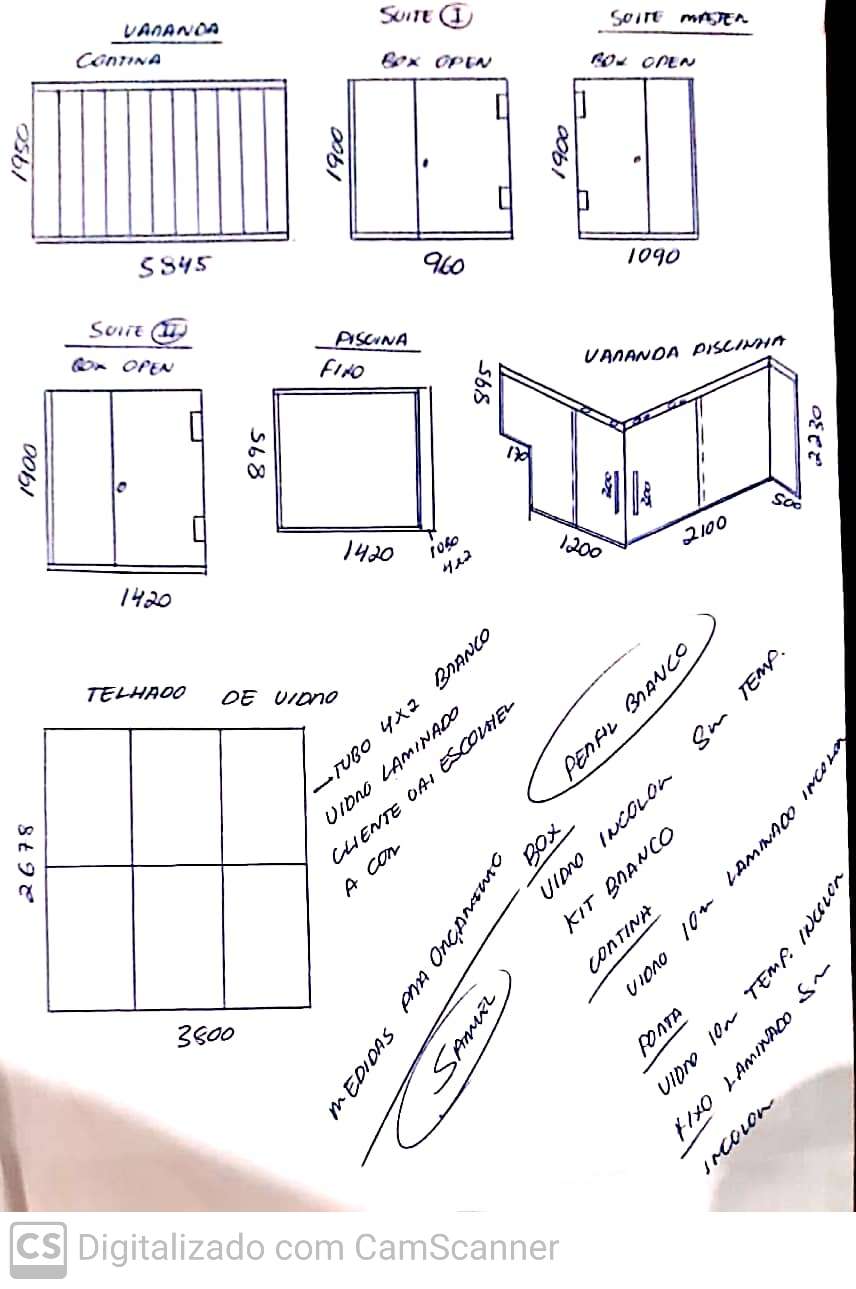 VARANDA
CORTINA
1950
5845
SUITE I
BOX OPEN
1900
960
SUITE MASTER
BOX OPEN
1900
1090
SUITE II
BOX OPEN
1900
1420
PISCINA
FIXO
895
1420
TUBO
4X2
VARANDA PISCINHA
895
170
300
300
1200
2100
500
2230
TELHADO DE VIDRO
2678
3800
TUBO 4X2 BRANCO
VIDRO LAMINADO
CLIENTE VAI ESCOLHER
A COR
PERFIL BRANCO
MEDIDAS PARA ORÇAMENTO
SAMUEL
BOX
VIDRO INCOLOR 8m TEMP.
KIT BRANCO
CORTINA
VIDRO 10m LAMINADO INCOLOR
PORTA
VIDRO 10m TEMP. INCOLOR
FIXO LAMINADO 8m
INCOLOR
CS Digitalizado com CamScanner